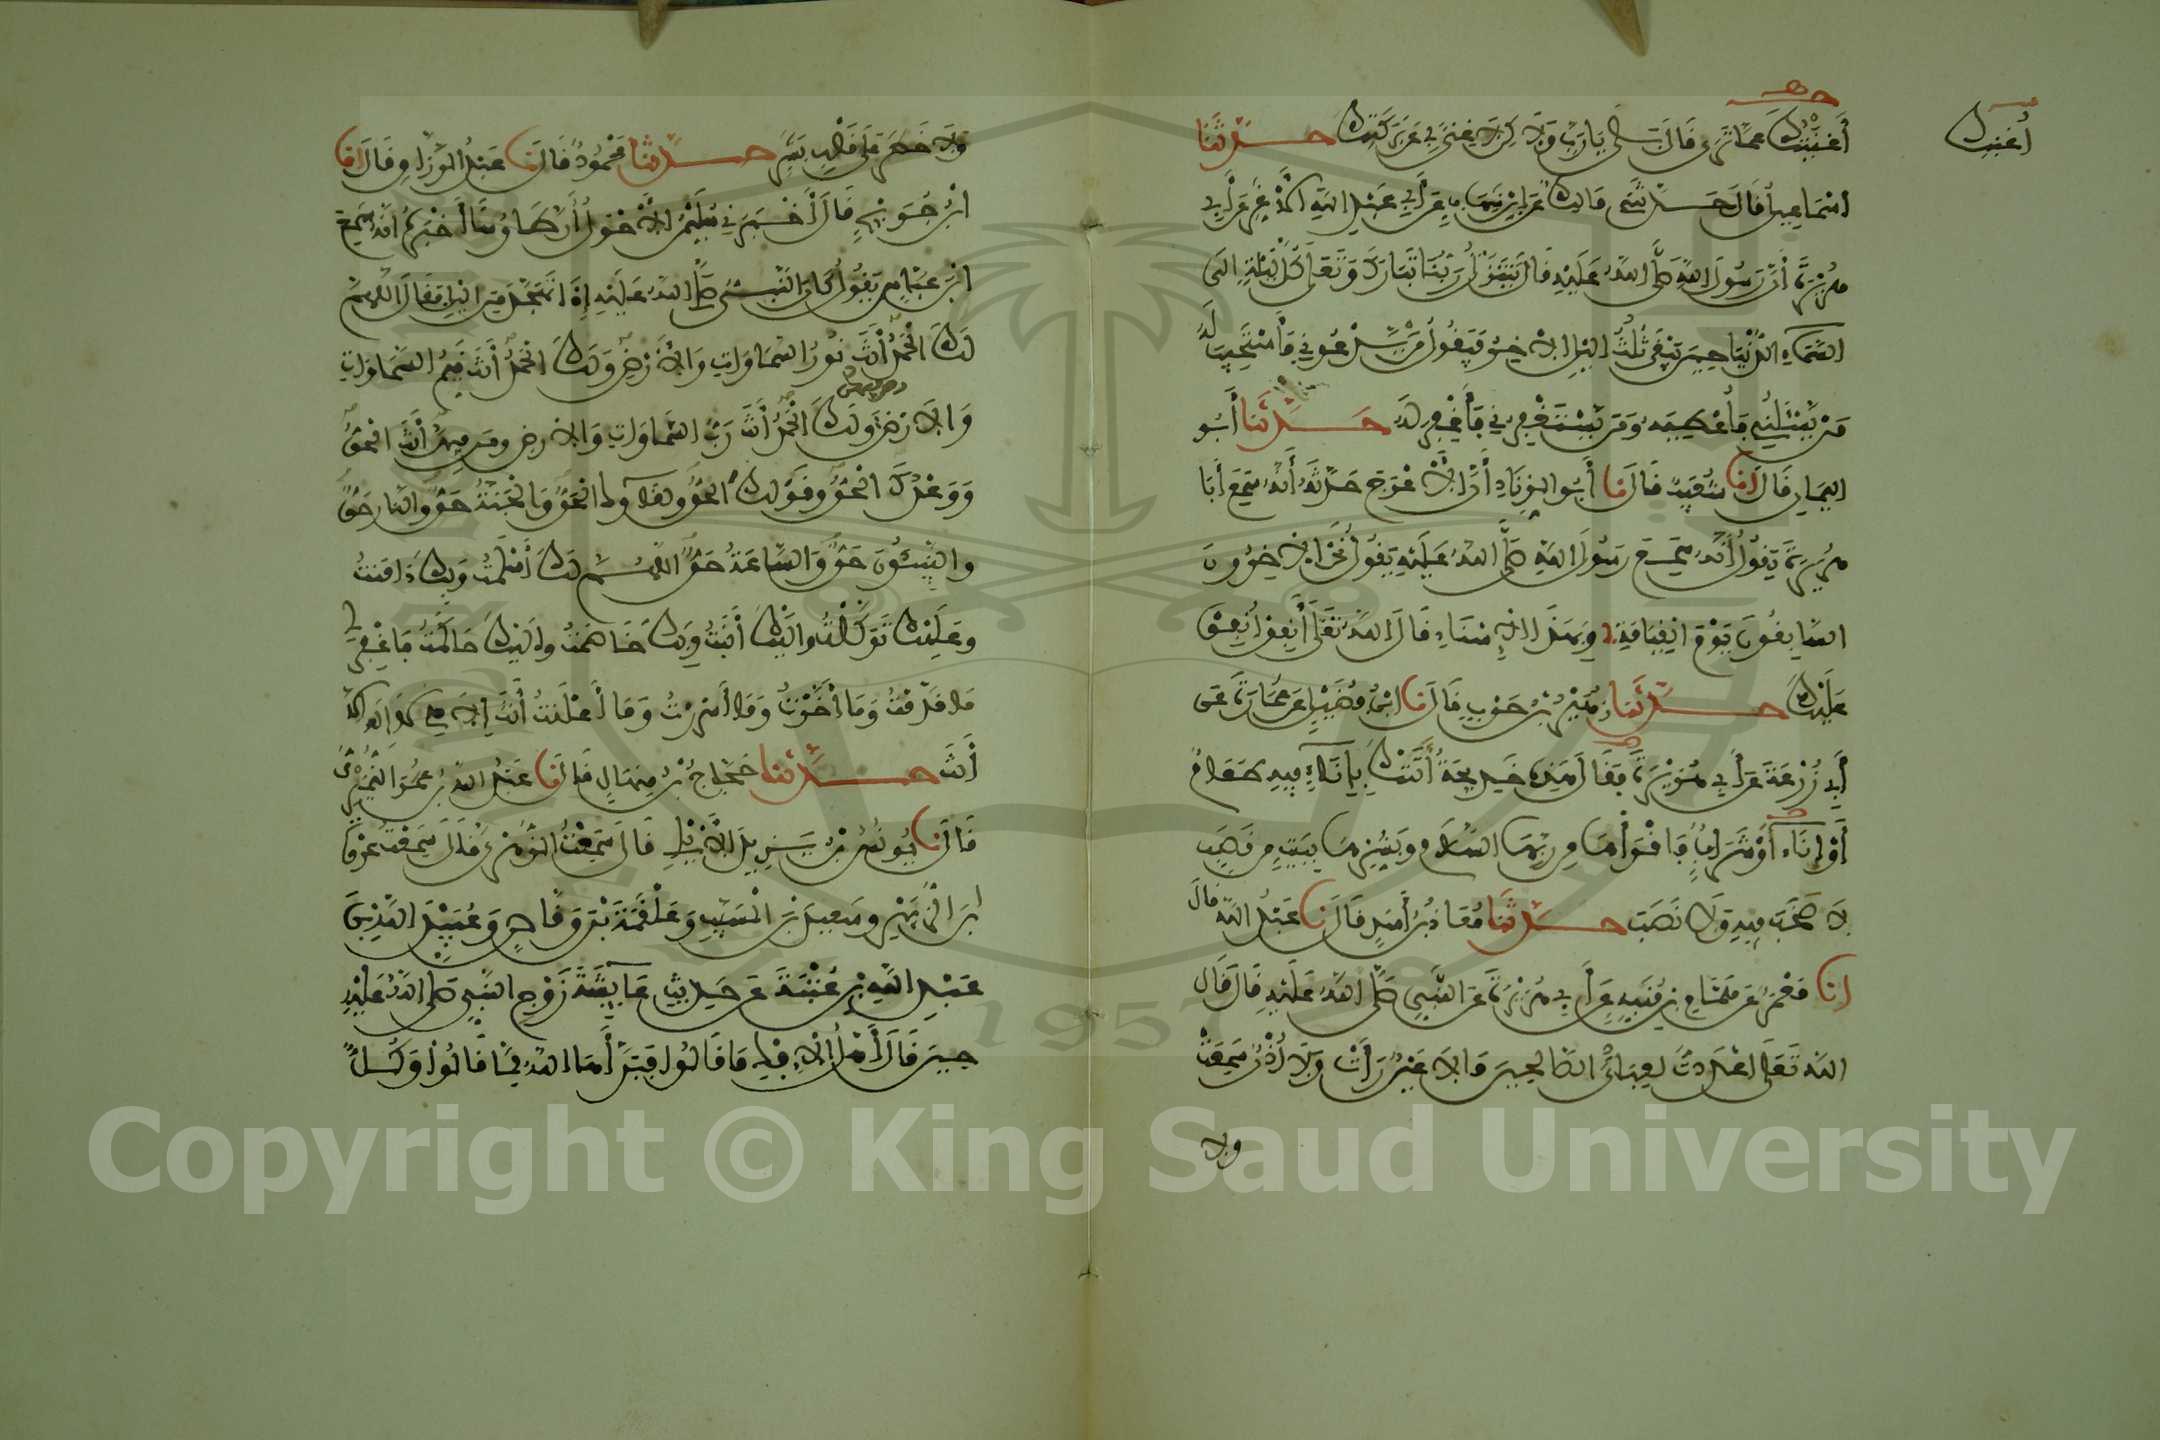 أغنيك
أَغْنَيْتُكَ عَمَّا تَرَى قَالَ بَلَى يَا رَبِّ وَلَكِن لَا غِنَى بِي عَن بَرَكَتِكَ حدثنا
اسماعيل قال حدثني مالك عن ابن شهاب عن أبي عبد الله الأغر عن أبي
هريرة أن رسول الله صلى الله عليه قال يتنزل ربنا تبارك وتعلى كل ليلة الى
السماء الدنيا حين يبقى ثلث الليل الاخر فيقول من يدعوني فأستجيب له
من يسئلني فأعطيه ومن يستغفرني فأغفر له حدثنا أبو
اليمان قال انا شعيب قال نا أبو الزناد أن الأعرج حدثه أنه سمع أبا
هريرة يقول أنه سمع رسول الله صلى الله عليه يقول نحن الاخرون
السابقون يوم القيامة وبهذا الاسناد قال الله تعلى أنفق أنفق
عليك حدثنا زهير بن حرب قال نا ابن فضيل عن عمارة عن
أبي زرعة عن أبي هريرة فقال هذه خديجة أتتك بإناء فيه طعام
أو إناء أو شراب فأقرأها من ربها السلام وبشرها ببيت من قصب
لا صخب فيه ولا نصب حدثنا معاذ بن أسد قال نا عبد الله قال
انا معمر عن همام بن منبه عن أبي هريرة عن النبي صلى الله عليه قال قال
الله تعلى اعددت لعبادي الصالحين ما لا عين رأت ولا أذن سمعت
ولا
ولا خطر على قلب بشر حدثنا محمود قال نا عبد الرزاق قال انا
ابن جريج قال أخبرني سليمن الاحول أن طاوسا أخبره انه سمع
ابن عباس يقول كان النبي صلى الله عليه إذا تهجد من الليل قال اللهم
لك الحمد أنت نور السماوات والأرض ولك الحمد أنت قيم السماوات
والارض ولك الحمد أنت رب السماوات والارض ومن فيهن أنت الحق
ووعدك الحق وقولك الحق ولقاؤك الحق والجنة حق والنار حق
والنبيئون حق والساعة حق اللهم لك أسلمت وبك ءامنت
وعليك توكلت واليك أنبت وبك خاصمت واليك حاكمت فاغفر لي
ما قدمت وما أخرت وما أسررت وما أعلنت أنت إلهي لا اله الا
أنت حدثنا حجاج بن منهال قال نا عبد الله بن عمر النميري
قال نا يونس بن يزيد الأيلي قال سمعت الزهري قال سمعت عروة
ابن الزبير وسعيد بن المسيب وعلقمة بن وقاص وعبيد الله بن
عبد الله بن عتبة عن حديث عايشة زوج النبي صلى الله عليه
حين قال لها أهل الافك ما قالوا فبرأها الله مما قالوا وكل